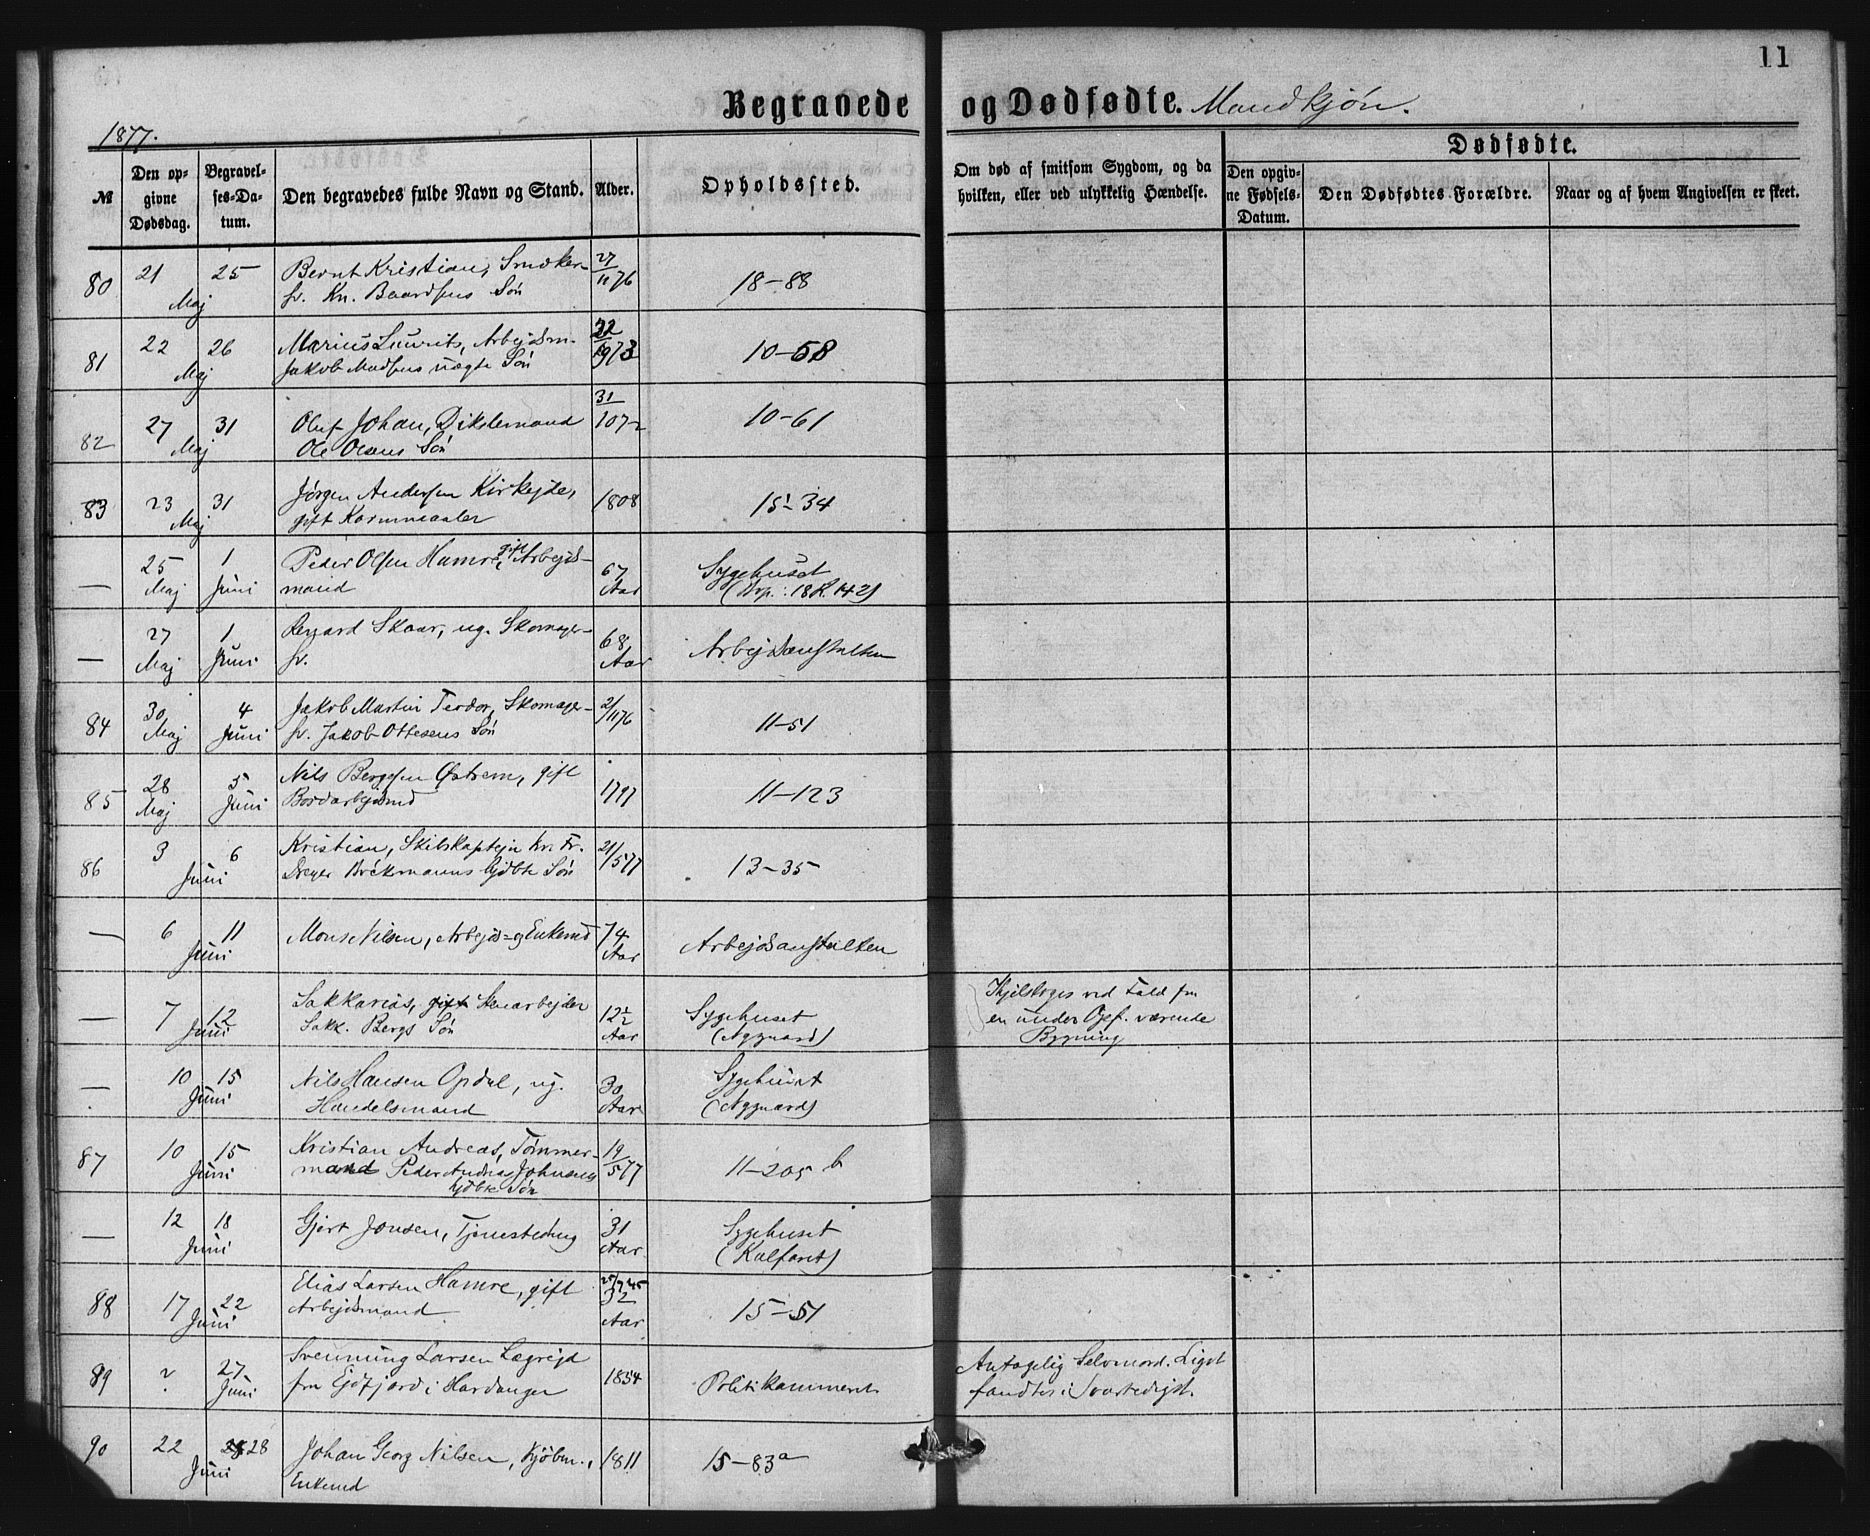 11
Begravede og Dødfødte. Mandkjøn.
1877.
№
Den opgivne Dødsdag.
Begravelses-Datum.
Den begravedes fulde Navn og Stand.
Alder.
Opholdssted.
Om død af smitsom Sygdom, og da hvilken, eller ved ulykkelig Hændelse.
Dødfødte.
Den opgivne Fødsels-Datum.
Den Dødfødtes Forældre.
Naar og af hvem Angivelsen er skeet.
80 21 25 Maj Bernt Kristian, 27/1176 18-88
sv. Kn. Baardsens Søn
81 22 26 Maj Marius Laurits, Arbejdsm. 10-58
Jakob Madsens uægte Søn
82 27 31 Maj Oluf Johan, Dikslemand 31/1072 10-61
Ole Olsens Søn
83 23 31 Maj Jørgen Andersen Kirkejde, 1808 15-34
gift Kornmaaler
— 25 Maj 1 Juni Peder Olsen Hamre, gift Arbejds- 67 Aar Sygehuset
mand (18 R. 142)
— 27 Maj 1 Juni Skaar, ug. Skomager- 68 Aar Arbejdsanstalten
sv.
84 30 Maj 4 Juni Jakob Martin Teodor, Skomager- 2/1176 11-51
sv. Jakob Ottesens Søn
85 28 Maj 5 Juni Nils Bergesen Østrem, gift 1797 11-123
Bordarbejdsmd
86 3 6 Juni Kristian, Skibskaptejn Kr. Fr. 21/577 13-35
Dreyer Brökmanns hjdbte Søn
— 6 11 Juni Mons Nilsen, Arbejds- og Enkemd 74 Aar Arbejdsanstalten
— 7 12 Juni Sakkarias, gift Stenarbejder 12½ Aar Sygehuset Ihjelsloges ved Fald fra
Sakk. Bergs Søn (Nygaard) en under Opf. værende
Bygning
— 10 15 Juni Nils Hansen Opdal, ug. 30 Aar Sygehuset
Handelsmand (Nygaard)
87 10 15 Juni Kristian Andreas, Tømmer- 19/577 11-205 b
mand Peder Andreas Johnsens
hjdbte Søn
— 12 18 Juni Gjert Jonsen, Tjenestedreng 31 Aar Sygehuset
(Kalfaret)
88 17 22 Juni Elias Larsen Hamre, gift 25/7 45 32 Aar 15-51
Arbejdsmand
89 ? 27 Juni Svenning Larsen Lægrejd 1854 Politikammeret Antagelig Selvmord. Liget
fra Ejdfjord i Hardanger fandtes i Svartedijet.
90 22 28 Juni Johan Georg Nilsen, Kjöbm., 1811 15-83a
Enkemd